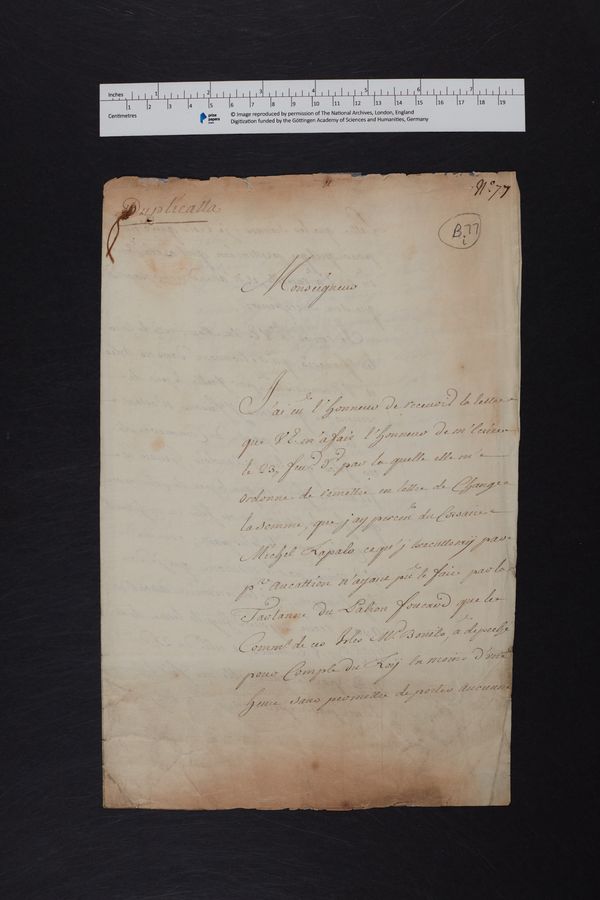 Inches 1 2 3 4 5 6 7
1 2 3 4 5 6 7 8 9 10 11 12 13 14 15 16 17 18 19
Centimetres
prize papers
© Image reproduced by permission of The National Archives, London, England
Digitization funded by the Göttingen Academy of Sciences and Humanities, Germany
N.° 77
Duplicatta
B 77
i
Monseigneur
J'ai eü l'honneur de recevoir la lettre
que V.E. m'a fait l'honneur de m'Ecrire
le 23, par la quelle elle m'a
ordonné de remettre en lettre de Change
la somme, que j'ay du Corsaire
Michel ce qu'j par
p.re n'ayant pû le faire par la
Tartanne du Patron foucard que le
Comm.r de ces Isles M.r a depeché
pour Compte du Roy la moins d'une
heure sans permettre de porter aucune